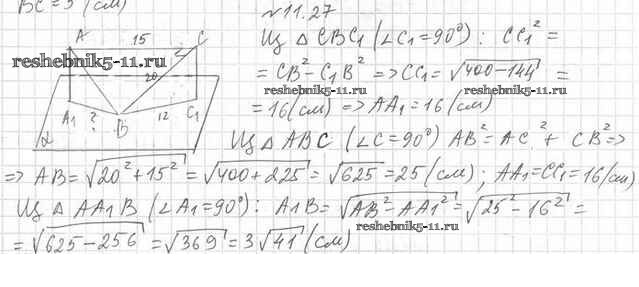 BC=5 (см)
№11.27
A 15 C
20
A₁ ? B 12 C₁
α
Из △ CBC₁ (∠C₁=90°): CC₁² =
= CB² - C₁B² => CC₁ = √400-144 =
= 16 (см) => AA₁ = 16 (см)
Из △ ABC (∠C=90°) AB² = AC² + CB² =>
=> AB = √20²+15² = √400+225 = √625 = 25 (см); AA₁=CC₁=16(см)
Из △ AA₁B (∠A₁=90°): A₁B = √AB²-AA₁² = √25²-16² =
= √625-256 = √369 = 3√41 (см)
reshebnik5-11.ru
reshebnik5-11.ru
reshebnik5-11.ru
reshebnik5-11.ru